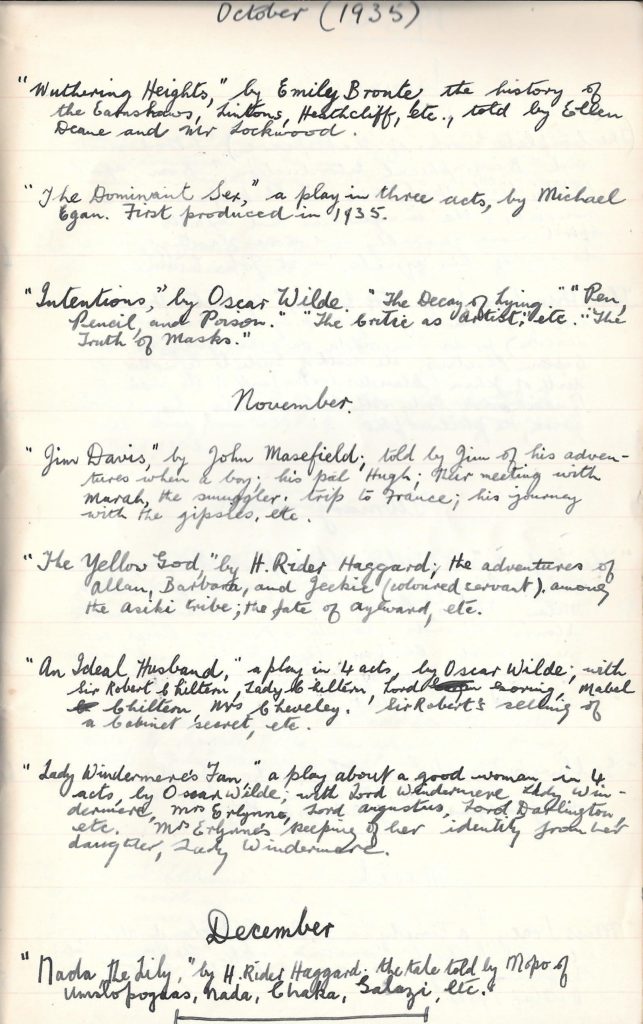 October (1935)
"Wuthering Heights," by Emily Bronte the history of
the Earnshaws, Lintons, Heathcliff, etc., told by Ellen
Deane and Mr Lockwood.
"The Dominant Sex," a play in three acts, by Michael
Egan. First produced in 1935.
"Intentions," by Oscar Wilde. "The Decay of Lying." "Pen,
Pencil, and Poison." "The Critic as Artist," etc. "The
Truth of Masks."
November.
"Jim Davis," by John Masefield; told by Jim of his adven-
tures when a boy; his pal Hugh; their meeting with
Marah, the smuggler. trip to France; his journey
with the gipsies, etc.
"The Yellow God," by H. Rider Haggard; the adventures of
Allan, Barbara, and Jeekie (coloured servant). among
the Asiki tribe; the fate of Aylward, etc.
"An Ideal Husband," a play in 4 acts, by Oscar Wilde; with
Sir Robert Chiltern, Lady Chiltern, Lord Goring, Mabel
Chiltern, Mrs Cheveley. Sir Robert's selling of
a Cabinet secret, etc.
"Lady Windermere's Fan," a play about a good woman, in 4
acts, by Oscar Wilde; with Lord Windermere Lady Win-
dermere, Mrs Erlynne, Lord Augustus, Lord Darlington,
etc. Mrs Erlynne's keeping of her identity from her
daughter, Lady Windermere.
December
"Nada the Lily," by H. Rider Haggard; the tale told by Mopo of
Umslopogaas, Nada, Chaka, Galazi, etc.